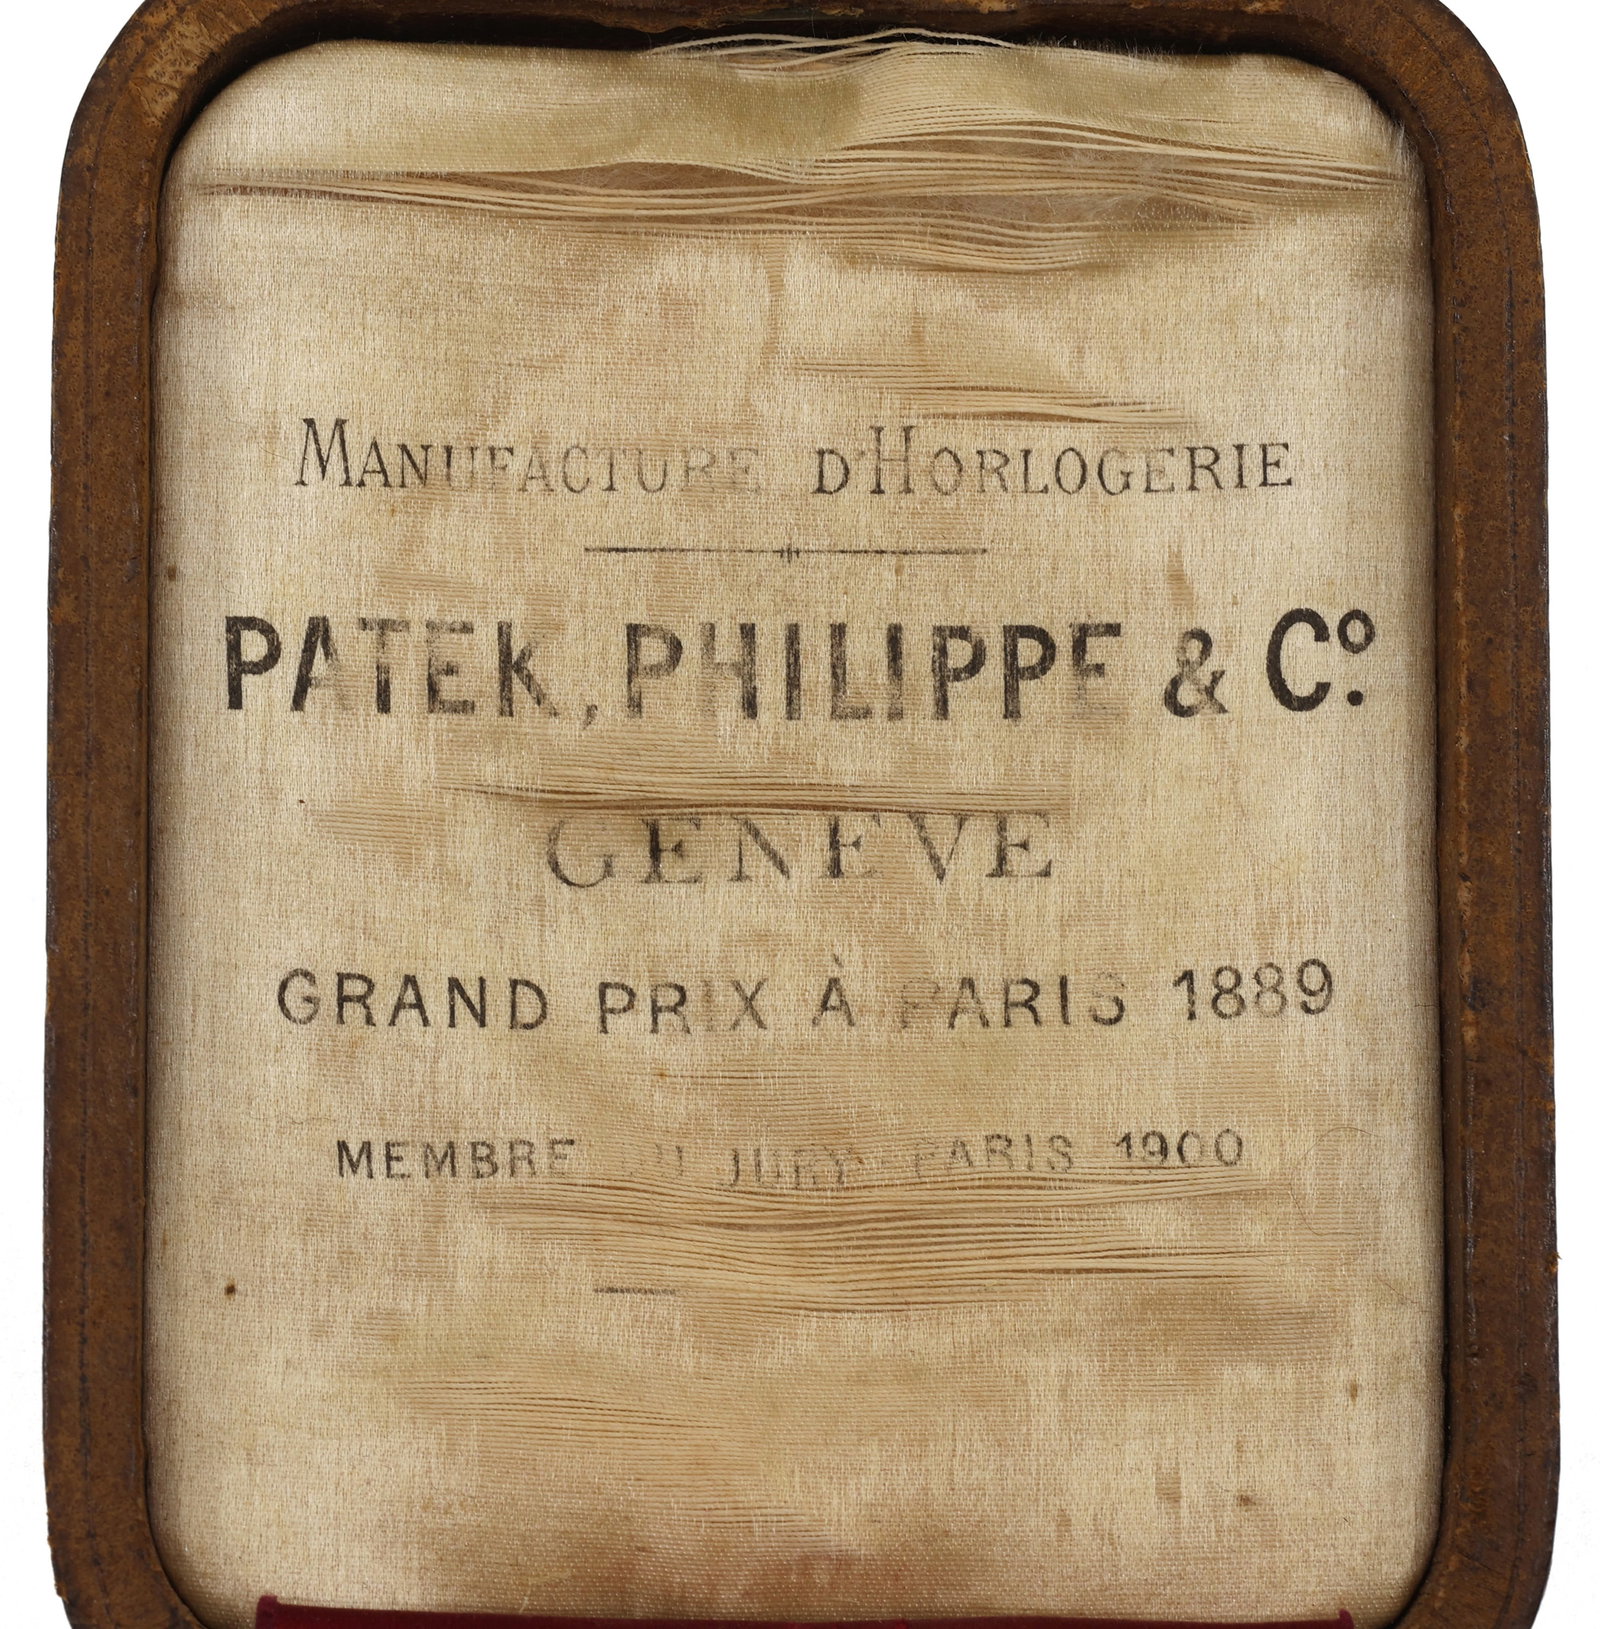 MANUFACTURE D'HORLOGERIE
PATEK, PHILIPPE & Cº.
GENÈVE
GRAND PRIX À PARIS 1889
MEMBRE DU JURY PARIS 1900